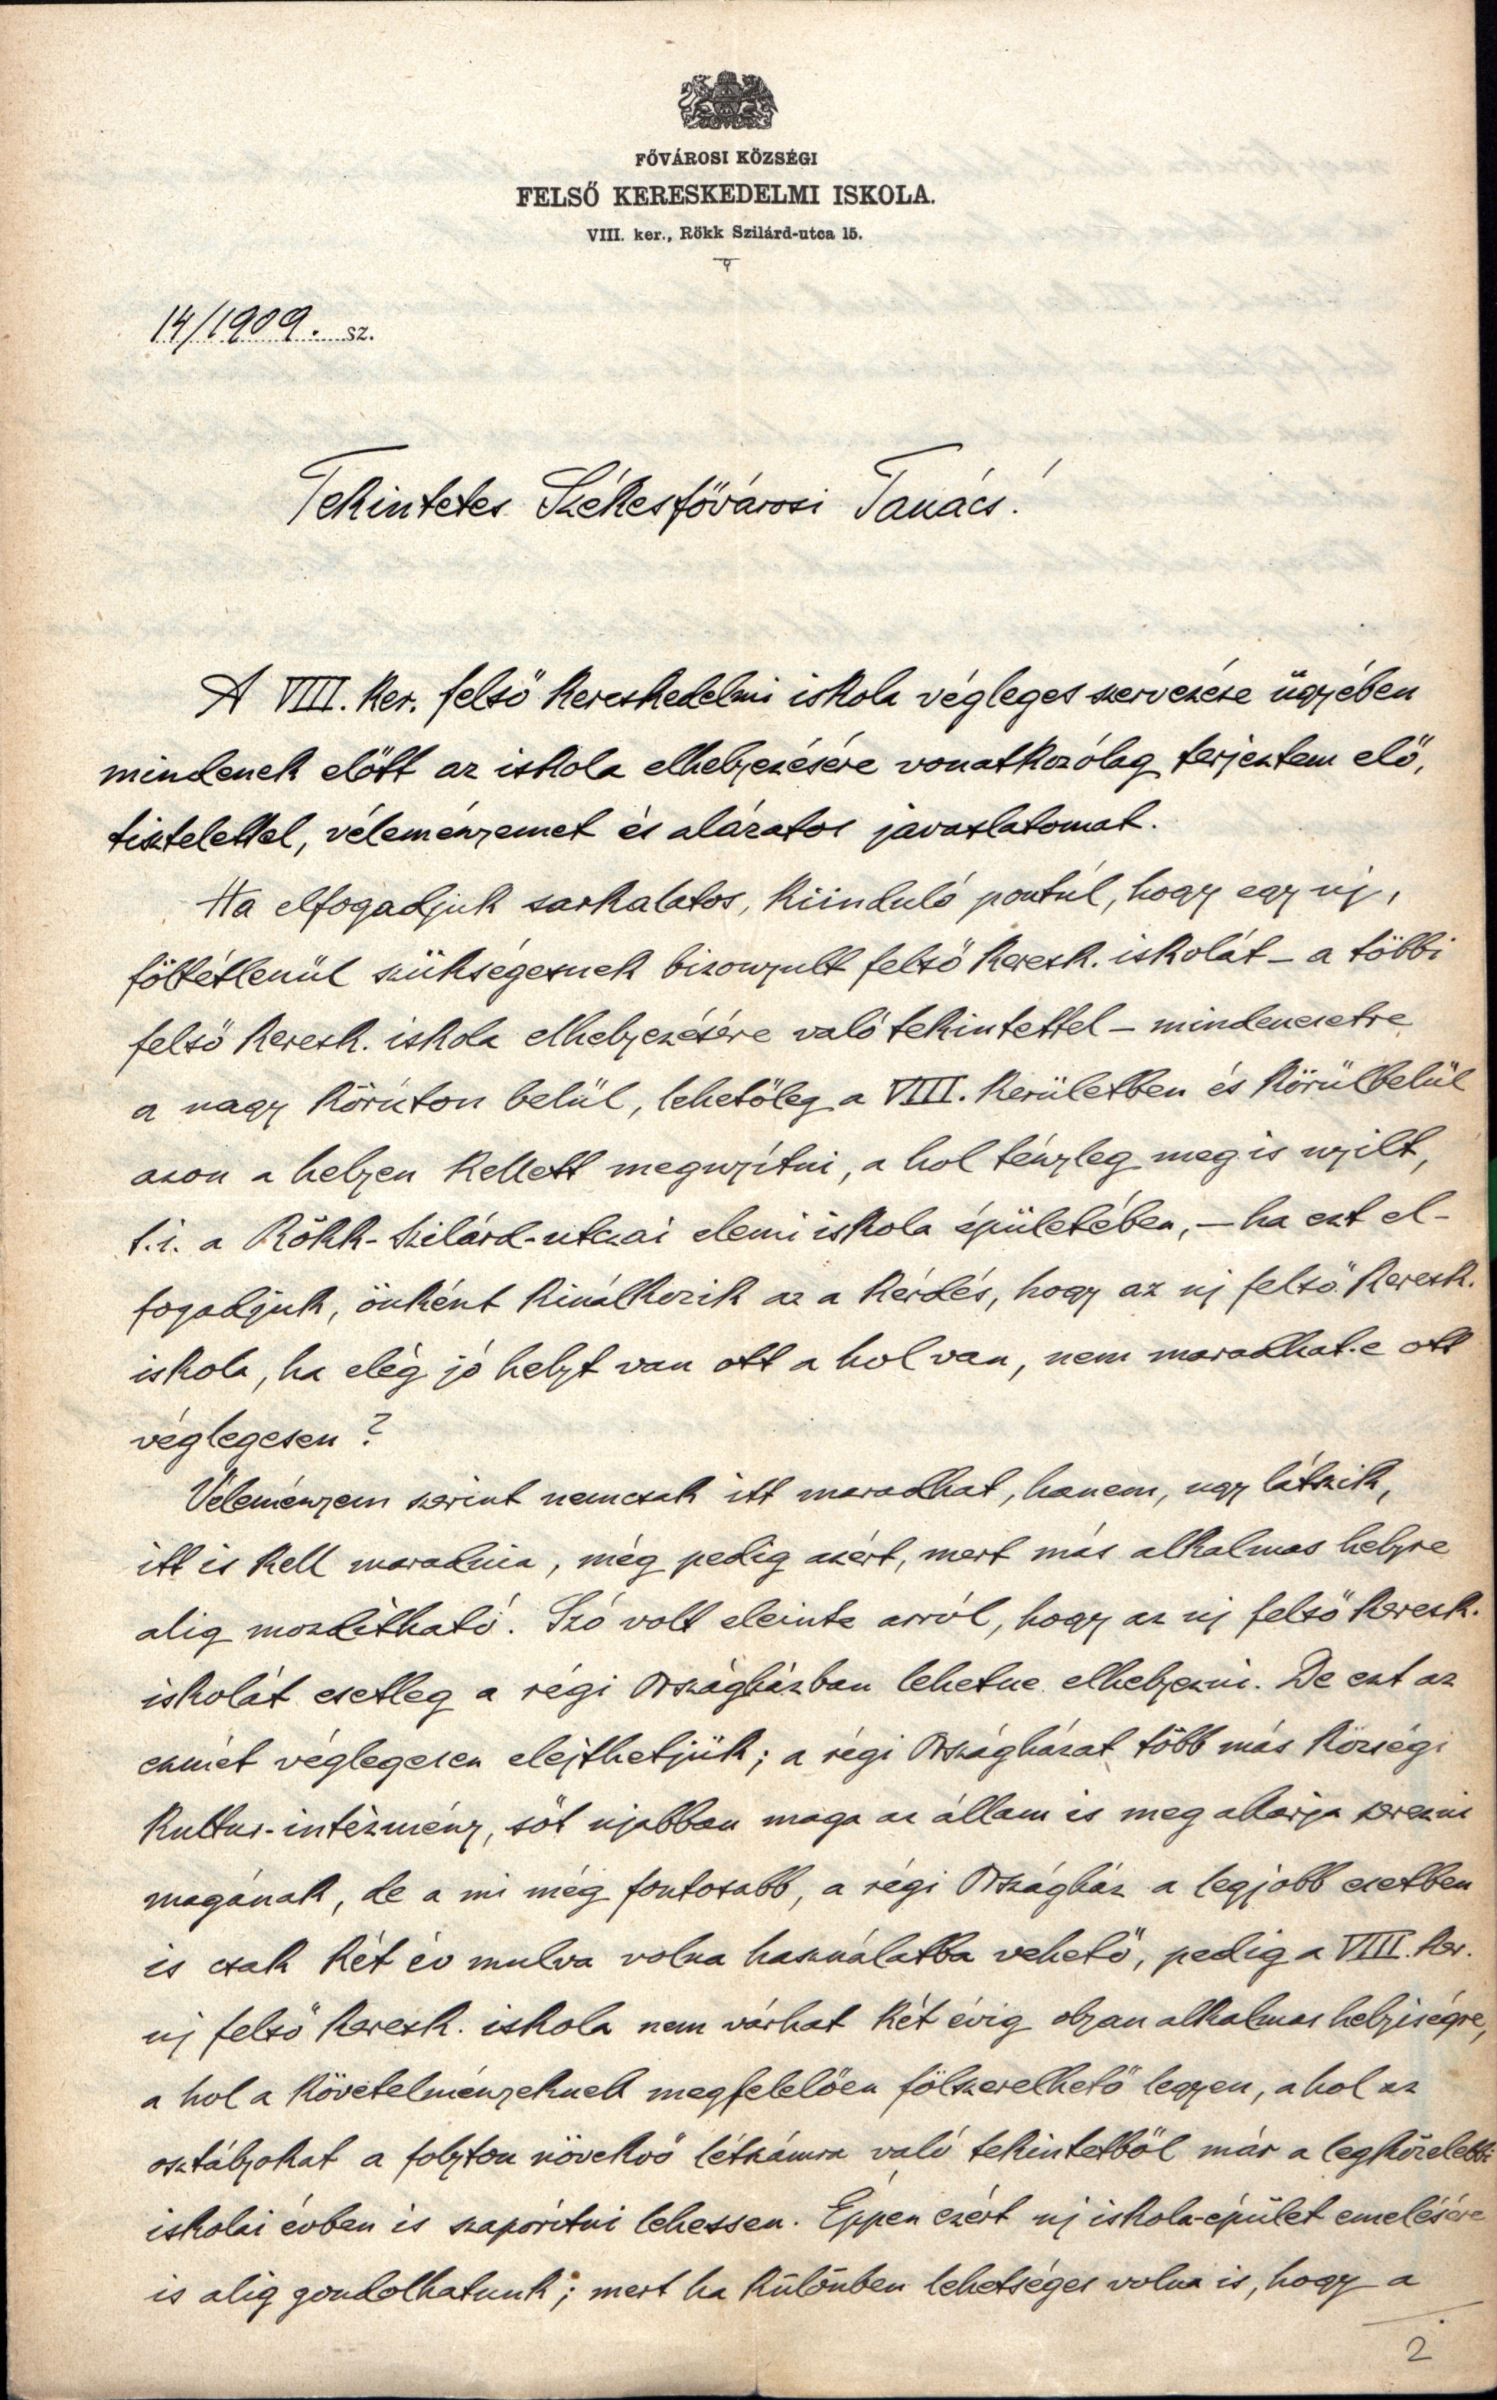 FŐVÁROSI KÖZSÉGI
FELSŐ KERESKEDELMI ISKOLA.
VIII. ker., Rökk Szilárd-utca 15.
14/1909. sz.
Tekintetes Székesfővárosi Tanács!
A VIII. ker. felső kereskedelmi iskola végleges szervezése ügyében
mindenek előtt az iskola elhelyezésére vonatkozólag terjesztem elő,
tisztelettel, véleményemet és alázatos javaslatomat.
Ha elfogadjuk sarkalatos, kiinduló pontúl, hogy egy uj,
föltétlenül szükségesnek bizonyult felső keresk. iskolát – a többi
felső keresk. iskola elhelyezésére való tekintettel – mindenesetre
a nagy körúton belül, lehetőleg a VIII. kerületben és körülbelül
azon a helyen kellett megnyítni, a hol tényleg meg is nyilt,
t.i. a Rökk-Szilárd-utczai elemi iskola épületében, – ha ezt el-
fogadjuk, önként kinálkozik az a kérdés, hogy az uj felső keresk.
iskola, ha elég jó helyt van ott a hol van, nem maradhat-e ott
véglegesen?
Véleményem szerint nemcsak itt maradhat, hanem, ugy látszik,
itt is kell maradnia, még pedig azért, mert más alkalmas helyre
alig mozdítható. Szó volt eleinte arról, hogy az uj felső keresk.
iskolát esetleg a régi Országházban lehetne elhelyezni. De ezt az
eszmét véglegesen elejthetjük; a régi Országházat több más községi
kultur-intézmény, sőt ujabban maga az állam is meg akarja szerezni
magának, de a mi még fontosabb, a régi Országház a legjobb esetben
is csak két év mulva volna használatba vehető, pedig a VIII. ker.
uj felső keresk. iskola nem várhat két évig olyan alkalmas helyiségre,
a hol a követelményeknek megfelelően fölszerelhető legyen, a hol az
osztályokat a folyton növekvő létszámra való tekintetből már a legközelebbi
iskolai évben is szaporítni lehessen. Éppen ezért uj iskola-épület emelésére
is alig gondolhatunk; mert ha különben lehetséges volna is, hogy a
2